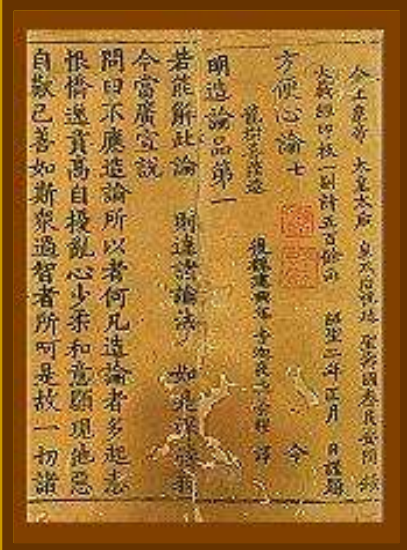 今上皇帝 太皇太后 皇太后祝延 聖壽國泰民安開
大藏經印板一副計五百餘函 紹聖二年正月 日謹題
方便心論 令
龍樹菩薩造 後魏延興年 吉迦夜 譯
明造論品第一
若能解此論 則達諸論法 如是深遠義
今當廣宣說
問曰不應造論所以者何凡造論者多起恚
恨憍逸貢高自擾亂心少柔和意顯現他惡
自歎己善如斯衆過智者所呵是故一切諸